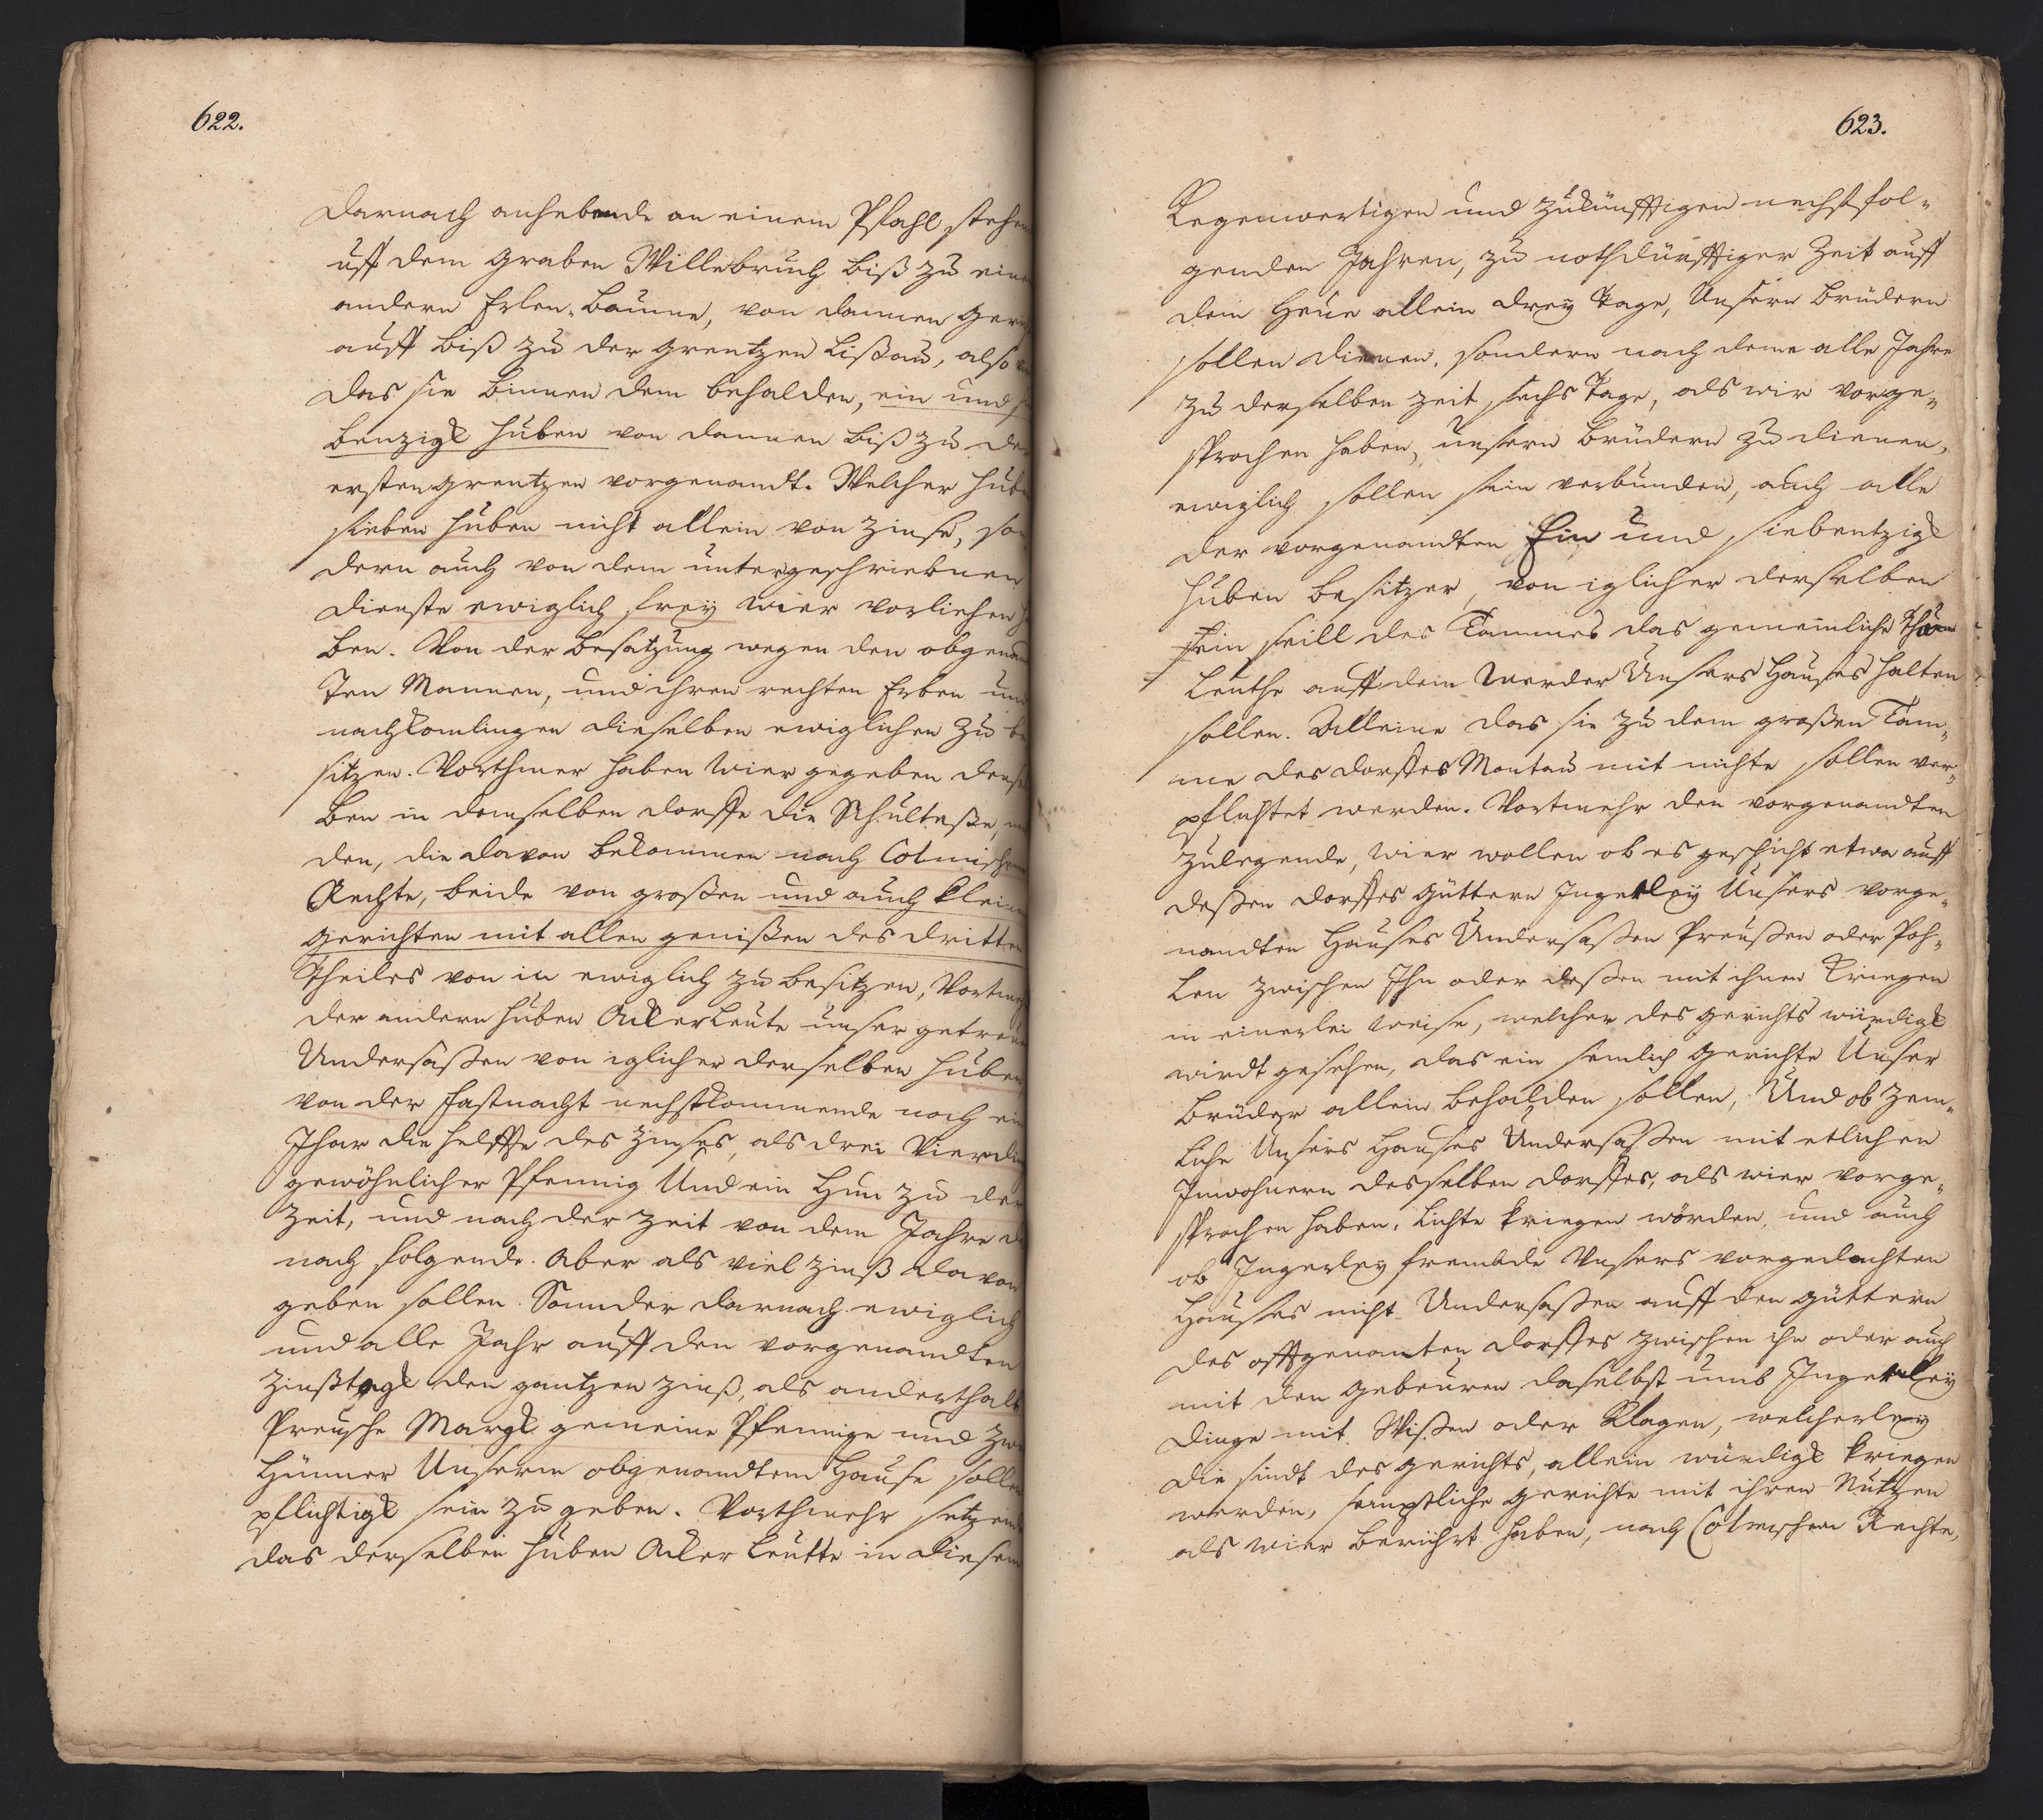 622.
Darnach anhebende an einem Pfahl stehen
uff dem graben Willebruch biß zu eine
andern Erlen-Baume, von dannen gerich
auff biß zu der grentzen Lißau, also
das sie binnen dem behalden, ein und si
benzigk huben von dannen biß zu de
ersten grentzen vorgenandt. Welcher hube
sieben huben nicht allein von Zinse, son
dern auch von dem untergeschriebenen
dienste ewiglich frey wier vorliehen h
ben. Von der besatzung wegen den obgenan
ten Mannen, und ihren rechten Erben und
nachkomlingen dieselben ewiglichen zu be
sitzen. Vorthmer haben wier gegeben densel
ben in demselben dorffe die Schulteße,
den, die davon bekommen nach Colmischem
Rechte, beide von großen und auch kleine
gerichten mit allen genißen des dritten
theiles von in ewiglich zu besitzen, Vortme
der andern huben Ackerleute unser getreu
Undersaßen von iglicher derselben huben
von der fastnacht nechstkommende noch ein
Jhar die helffte des Zinses, als drei Vierdi
gewöhnlicher Pfennig Und ein Hun zu der
Zeit, und nach der Zeit von dem Jahre da
nach folgende. Aber als viel Zinß davon
geben sollen. Sonnder darnach ewiglich
und alle Jahr auff den vorgenandten
Zinßtagk den gantzen Zinß, als anderthalb
Preusche Margk gemeine Pfennige und zwe
Hünner Unserm obgenandtem Hause solle
pflichtigk sein zu geben. Vorthmehr setzend
das derselben huben Acker Leutte in diesem
623.
Kegenwertigen und zukünfftigen nechstfol-
genden Jahren, zu nothdürfftiger Zeit auff
dem Heue allein drey Tage, Unsern Brüdern
sollen dienen, sondern nach deme alle Jahre
zu derselben zeit, sechs Tage, als wir vorge-
sprochen haben, unsern Brüdern zu dienen,
ewiglich sollen sein verbunden, auch alle
der vorgenandten Ein und siebentzigk
huben besitzer, von iglicher derselben
Ein seill des Tammes das gemeinliche
Leuthe auff dem werder Unsers Hauses halten
sollen. Alleine das sie zu dem großen Tam-
me des dorffes Montau mit nichte sollen ver-
pflichtet werden. Vortmehr den vorgenandten
zulegende, wier wollen ob es geschicht etwa auff
deßen dorffes güttern Ingerley Unsers vorge-
nandten Hauses Undersaßen Preußen oder Poh-
len zwischen Ihn oder deßen mit ihnen Kriegen
in einerlei weise, welcher des gerichts würdigk
wirdt gesehen, das ein semlich gerichte Unser
Brüder allein behalden sollen, Und ob zem-
liche Unsers Hauses Undersaßen mit etlichen
Inwohnern desselben dorffes, als wier vorge-
sprochen haben, lichte kriegen wörden, und auch
ob Ingerley frembde Unsers vorgedachten
Hauses nicht Undersaßen auff den güttern
des offtgenanten dorffes zwischen ihn oder auch
mit den gebeuren daselbst umb Ingerley
dinge mit Wißen oder Klagen, welcherley
die sindt des gerichts, allein würdigk kriegen
werden, semptliche gerichte mit ihren Nutzen
als wier berührt haben, nach Colmischem Rechte,